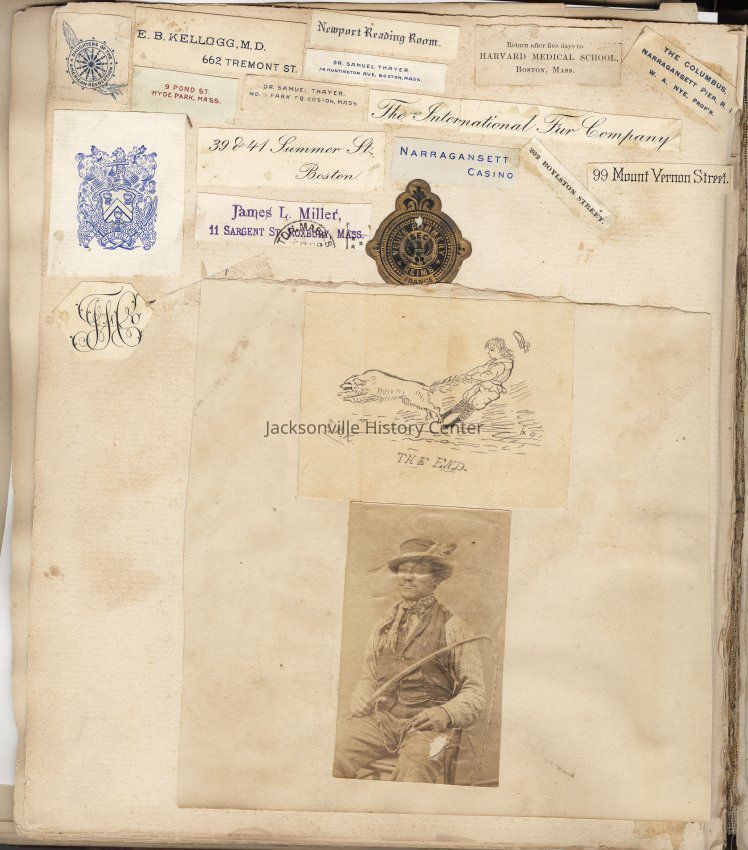 DAUGHTERS OF
E. B. KELLOGG, M.D.
662 TREMONT ST.
Newport Reading Room.
DR. SAMUEL THAYER,
74 HUNTINGTON AVE. BOSTON, MASS.
Return after five days to
HARVARD MEDICAL SCHOOL,
BOSTON, MASS.
THE COLUMBUS,
NARRAGANSETT PIER, R. I.
W. A. NYE, PROP'R.
9 POND ST.
HYDE PARK, MASS.
DR. SAMUEL THAYER,
PARK SQ. BOSTON, MASS
The International Fur Company
39 & 41 Summer St.,
Boston.
NARRAGANSETT
CASINO
202 BOYLSTON STREET.
99 Mount Vernon Street.
James L. Miller,
11 SARGENT ST. ROXBURY, MASS.
REIMS
FRANCE
Jacksonville History Center
THE END.